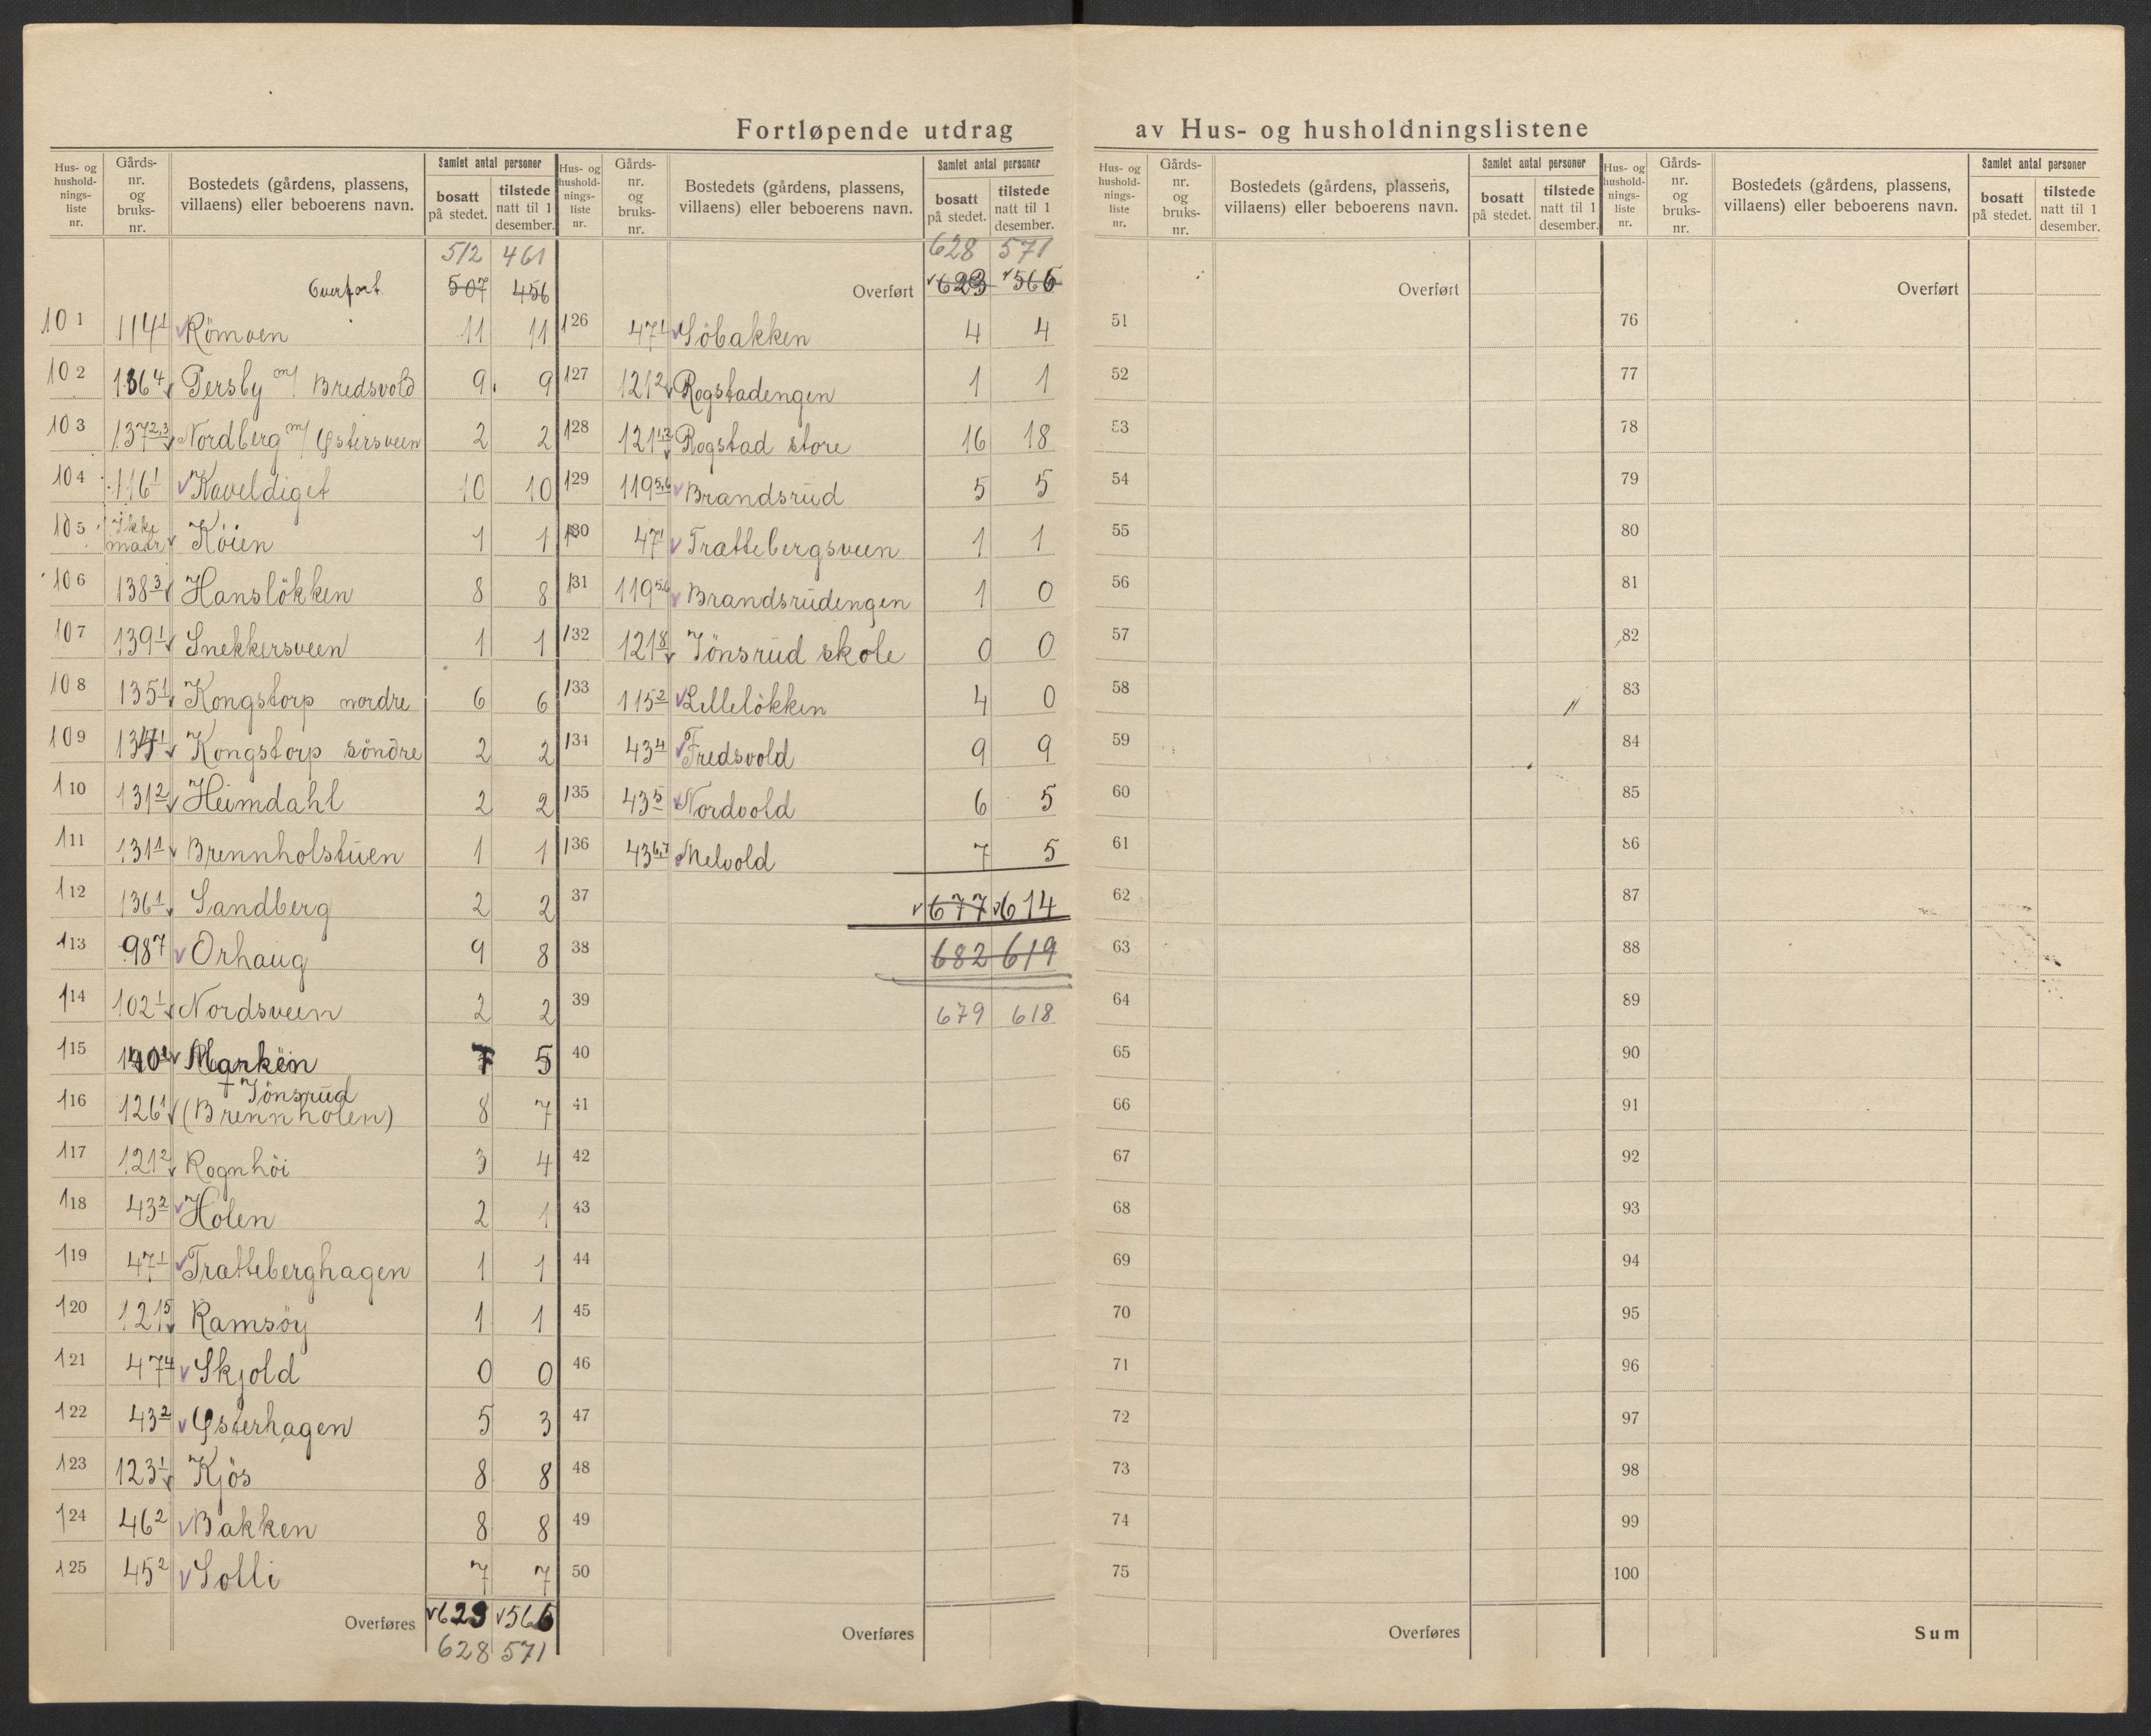 Fortløpende utdrag av Hus- og husholdningslistene
Hus- og hushold- nings- liste nr. Gårds- nr. og bruks- nr. Bostedets (gårdens, plassens, villaens) eller beboerens navn. Samlet antal personer bosatt på stedet. tilstede natt til 1 desember.
512 461
Overført 507 456
101 114 1 Römoen 11 11
102 136 4 Persby m/ Bredsvold 9 9
103 137 2,3 Nordberg m/ Østersveen 2 2
104 116 1 Kaveldiget 10 10
105 Ikke matr Köien 1 1
106 138 3 Hanslökken 8 8
107 139 1 Snekkersveen 1 1
108 135 1 Kongstorp nordre 6 6
109 134 1 Kongstorp söndre 2 2
110 131 2 Heimdahl 2 2
111 131 1 Brennholstuen 1 1
112 136 1 Sandberg 2 2
113 98 7 Orhaug 9 8
114 102 1 Nordsveen 2 2
115 Marken 7 5
116 126 1 + Jönsrud (Brennholen) 8 7
117 121 2 Rognhöi 3 4
118 43 2 Holen 2 1
119 47 1 Tratteberghagen 1 1
120 121 5 Ramsöy 1 1
121 47 4 Skjold 0 0
122 43 2 Østerhagen 5 3
123 123 1 Kjös 8 8
124 46 2 Bakken 8 8
125 45 2 Solli 7 7
Overføres 623 566
628 571
Hus- og hushold- nings- liste nr. Gårds- nr. og bruks- nr. Bostedets (gårdens, plassens, villaens) eller beboerens navn. Samlet antal personer bosatt på stedet. tilstede natt til 1 desember.
628 571
Overført 623 566
126 47 1 Söbakken 4 4
127 121 2 Rogstadengen 1 1
128 121 1,2 Rogstad store 16 18
129 119 5,6 Brandsrud 5 5
130 47 1 Trattebergsveen 1 1
131 119 5,6 Brandsrudengen 1 0
132 121 8 Jönsrud skole 0 0
133 115 2 Lillelökken 4 0
134 43 4 Fredsvold 9 9
135 43 5 Nordvold 6 5
136 43 6,7 Melvold 7 5
37 677 614
38 682 619
39 679 618
40
41
42
43
44
45
46
47
48
49
50
Overføres
Hus- og hushold- nings- liste nr. Gårds- nr. og bruks- nr. Bostedets (gårdens, plassens, villaens) eller beboerens navn. Samlet antal personer bosatt på stedet. tilstede natt til 1 desember.
Overført
51
52
53
54
55
56
57
58
59
60
61
62
63
64
65
66
67
68
69
70
71
72
73
74
75
Overføres
Hus- og hushold- nings- liste nr. Gårds- nr. og bruks- nr. Bostedets (gårdens, plassens, villaens) eller beboerens navn. Samlet antal personer bosatt på stedet. tilstede natt til 1 desember.
Overført
76
77
78
79
80
81
82
83
84
85
86
87
88
89
90
91
92
93
94
95
96
97
98
99
100
Sum